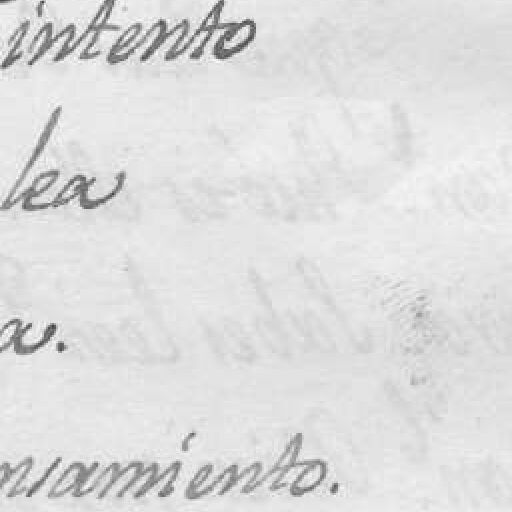 intento
lea
a.
nsamiento.